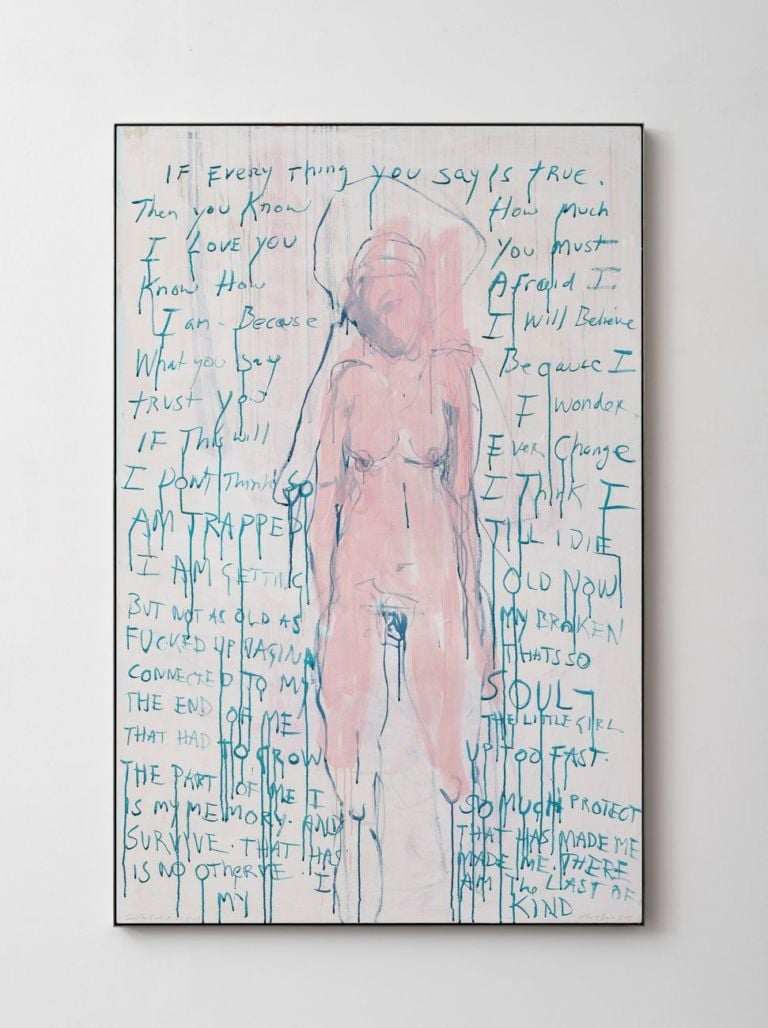 IF EVERY Thing you say is TRUE.
Then you Know How Much
I LOVE YOU You Must
Know How Afraid I
I am. Because I Will Believe
What you say Because I
trust you I wonder
IF This will Ever Change
I DONT Think SO I Think I
AM TRAPPED TILL I DIE
I AM GETTING OLD NOW
BUT NOT AS OLD AS MY BROKEN
FUCKED UP VAGINA THATS SO
CONNECTED TO MY SOUL
THE END OF ME THE LITTLE GIRL
THAT HAD TO GROW UP TOO FAST.
THE PART OF ME I SO MUCH PROTECT
IS MY MEMORY. AND THAT HAS MADE ME
SURVIVE. THAT HAS MADE ME. THERE
IS NO OTHER I AM The LAST OF
MY KIND